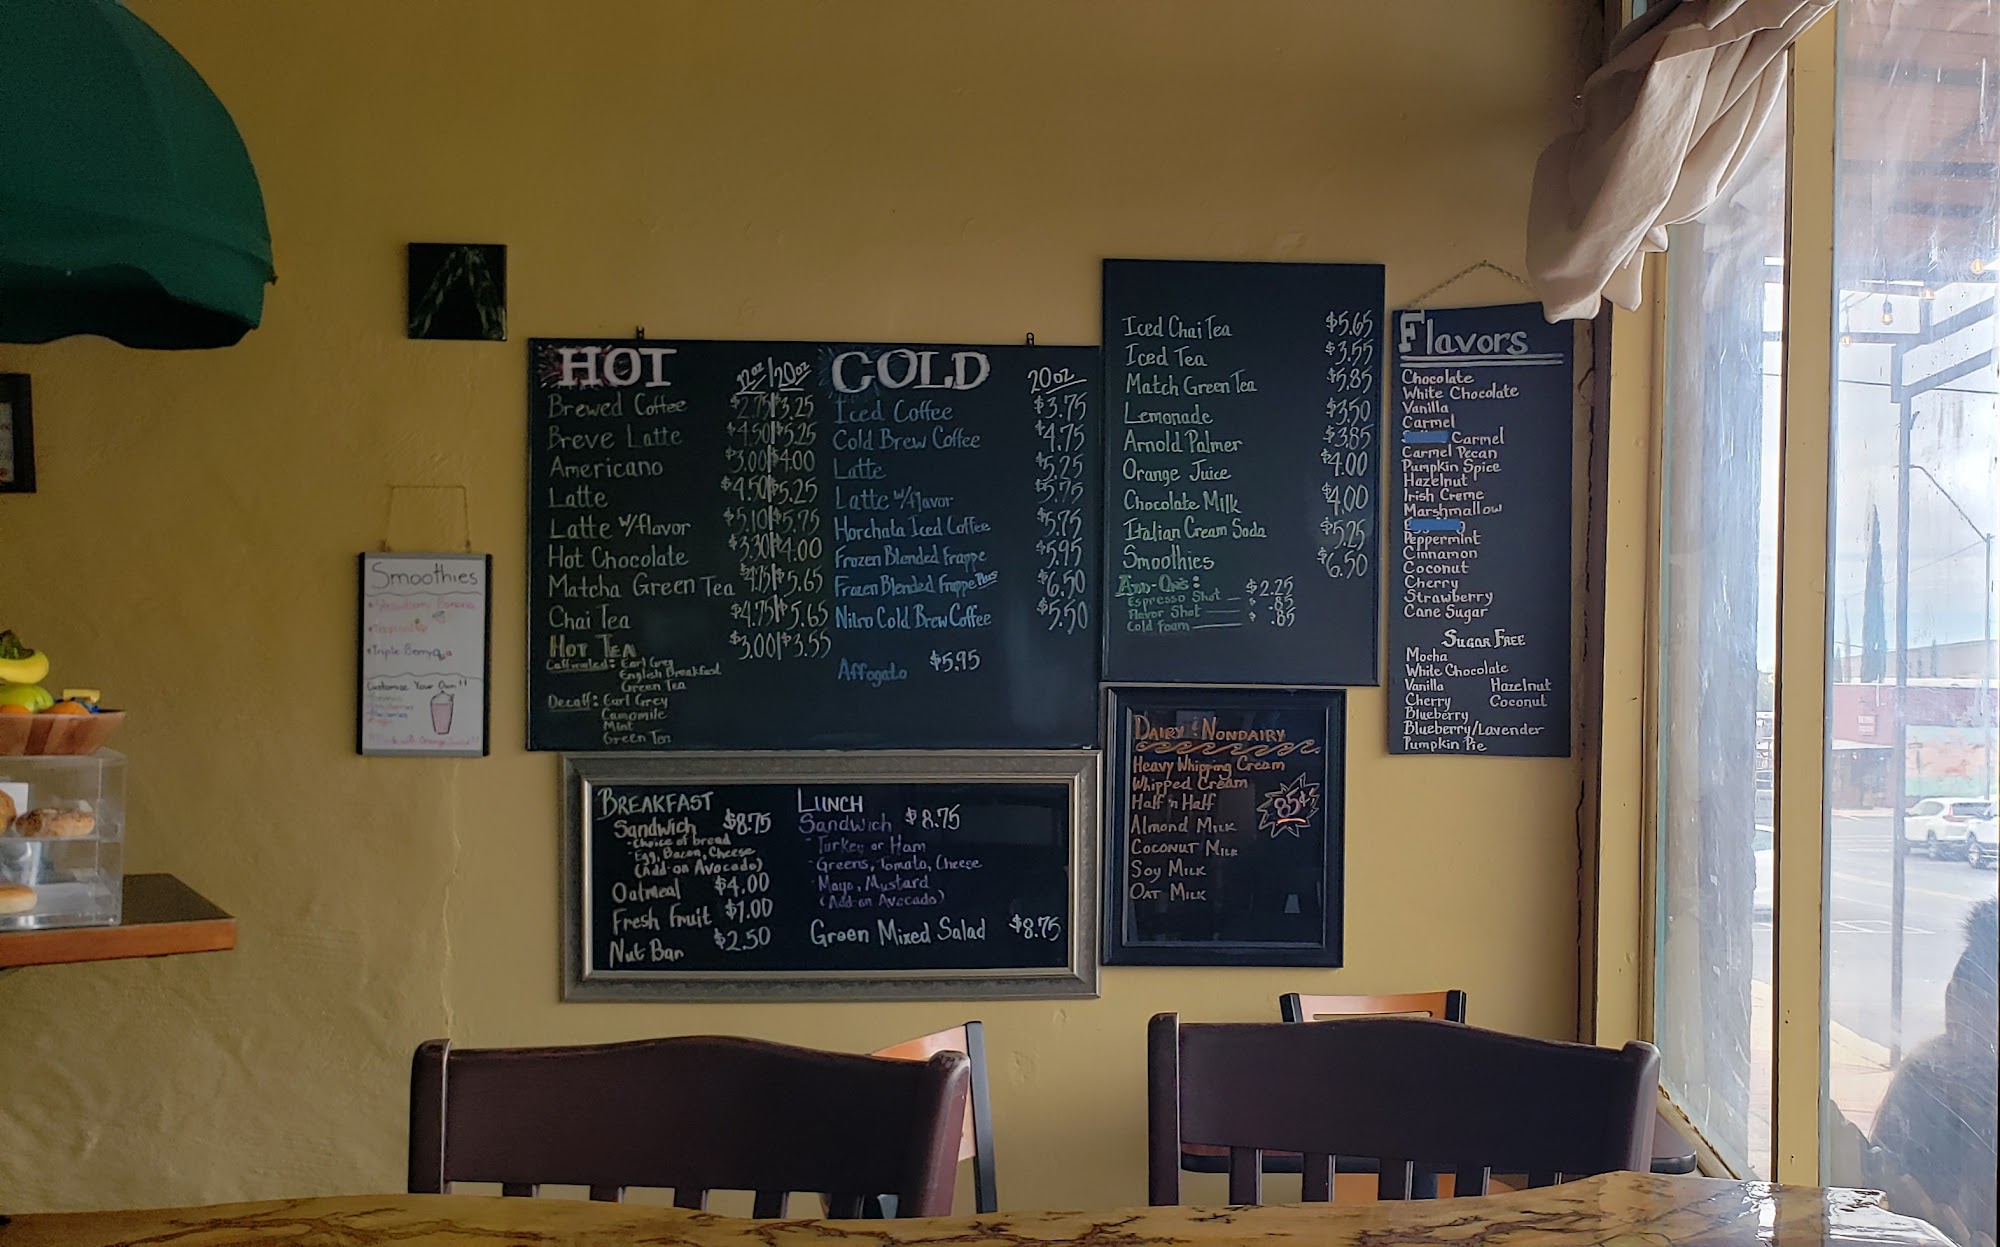 Smoothies
Strawberry Banana
Tropical
Triple Berry
Customize Your Own!!
HOT 12oz/20oz
Brewed Coffee $2.75/$3.25
Breve Latte $4.50/$5.25
Americano $3.00/$4.00
Latte $4.50/$5.25
Latte w/flavor $5.10/$5.75
Hot Chocolate $3.30/$4.00
Matcha Green Tea $4.75/$5.65
Chai Tea $4.75/$5.65
Hot Tea $3.00/$3.55
Caffinated: Earl Grey
English Breakfast
Green Tea
Decaff: Earl Grey
Camomile
Mint
Green Tea
COLD 20oz
Iced Coffee $3.75
Cold Brew Coffee $4.75
Latte $5.25
Latte w/flavor $5.75
Horchata Iced Coffee $5.75
Frozen Blended Frappe $5.95
Frozen Blended Frappe Plus $6.50
Nitro Cold Brew Coffee $5.50
Affogato $5.95
Iced Chai Tea $5.65
Iced Tea $3.55
Match Green Tea $5.85
Lemonade $3.50
Arnold Palmer $3.85
Orange Juice $4.00
Chocolate Milk $4.00
Italian Cream Soda $5.25
Smoothies $6.50
Add-Ons:
Espresso Shot $2.25
Flavor Shot $.85
Cold Foam $.85
Flavors
Chocolate
White Chocolate
Vanilla
Carmel
Carmel
Carmel Pecan
Pumpkin Spice
Hazelnut
Irish Creme
Marshmallow
Peppermint
Cinnamon
Coconut
Cherry
Strawberry
Cane Sugar
Sugar Free
Mocha
White Chocolate
Vanilla Hazelnut
Cherry Coconut
Blueberry
Blueberry/Lavender
Pumpkin Pie
Breakfast
Sandwich $8.75
- Choice of bread
- Egg, Bacon, Cheese
(Add-on Avocado)
Oatmeal $4.00
Fresh Fruit $1.00
Nut Bar $2.50
Lunch
Sandwich $8.75
- Turkey or Ham
- Greens, Tomato, Cheese
- Mayo, Mustard
(Add-on Avocado)
Green Mixed Salad $8.75
Dairy & Nondairy
Heavy Whipping Cream
Whipped Cream
Half n Half
85¢
Almond Milk
Coconut Milk
Soy Milk
Oat Milk